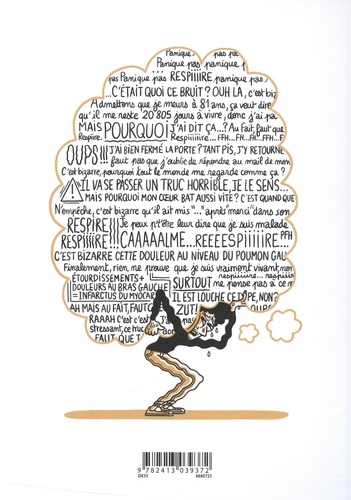 Panique.. pas pa
Panique pas panique pas
pas Panique pas RESPIIIIRE panique pas..
...C'ÉTAIT QUOI CE BRUIT? OUH LA, C'EST BIZ
Admettons que je meurs à 81 ans, ça veut dire
qu'il me reste 20 805 jours à vivre, donc j'ai pa
MAIS POURQUOI J'AI DIT ÇA...? Au fait, faut que
Respire. Respiiiiiire... FFH... FFH... FFH... F
OUPS!!! J'AI BIEN FERMÉ LA PORTE? TANT PIS, J'Y RETOURNE
faut pas que j'oublie de répondre au mail de mon
C'est bizarre, pourquoi tout le monde me regarde comme ça?
IL VA SE PASSER UN TRUC HORRIBLE, JE LE SENS...
MAIS POURQUOI MON CŒUR BAT AUSSI VITE? C'EST QUAND QUE
N'empêche, c'est bizarre qu'il ait mis "..." après "merci" dans son
RESPIRE!!! Je peux p't'être leur dire que je suis malade
RESPIIIIIRE!!! CAAAAALME...REEEESPIIIIIRE. PFH
C'EST BIZARRE CETTE DOULEUR AU NIVEAU DU POUMON GAU
Finalement, rien me prouve que je suis vraiment vivant, mon
ÉTOURDISSEMENTS + respiiiiire... respiiire
DOULEURS AU BRAS GAUCHE SURTOUT me pense pas à ce
= INFARCTUS DU MYOCAR IL EST LOUCHE CE TYPE, NON?
AH MAIS AU FAIT, FAUT ZUT!
RAAAH C'est c'est J'AI
stressant, ce truc
FAUT QUE T
9 782413 039372
DE35 8880723